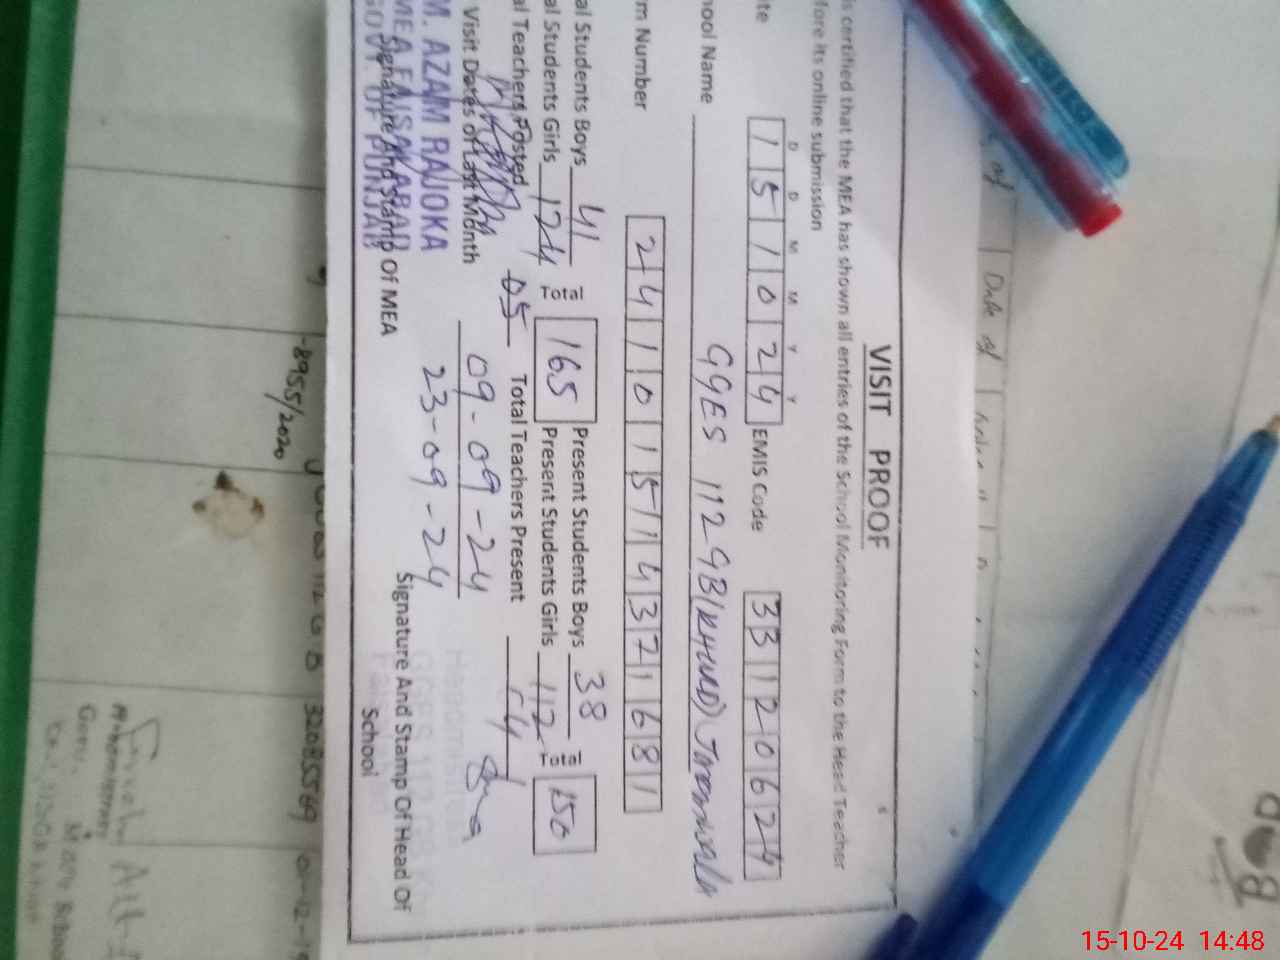 VISIT PROOF
is certified that the MEA has shown all entries of the School Monitoring Form to the Head Teacher
fore its online submission
D D M M Y Y
te 1 5 1 0 2 4 EMIS Code 3 3 1 2 0 6 2 4
hool Name GGES 112 GB
rm Number 2 4 1 0 1 5 1 4 3 7 1 6 8 1
al Students Boys 41 Present Students Boys 38
al Students Girls 124 165 Present Students Girls 112 150
al Teachers Posted 05 Total Teachers Present 4
Visit Dates of Last Month 09-09-24
23-09-24
M. AZAM RAJOKA
MEA FAISALABAD
GOVT OF PUNJAB
Signature And Stamp Of MEA
Signature And Stamp Of Head Of
School
Date of
-8955/2020
112 G B 32085569
15-10-24 14:48